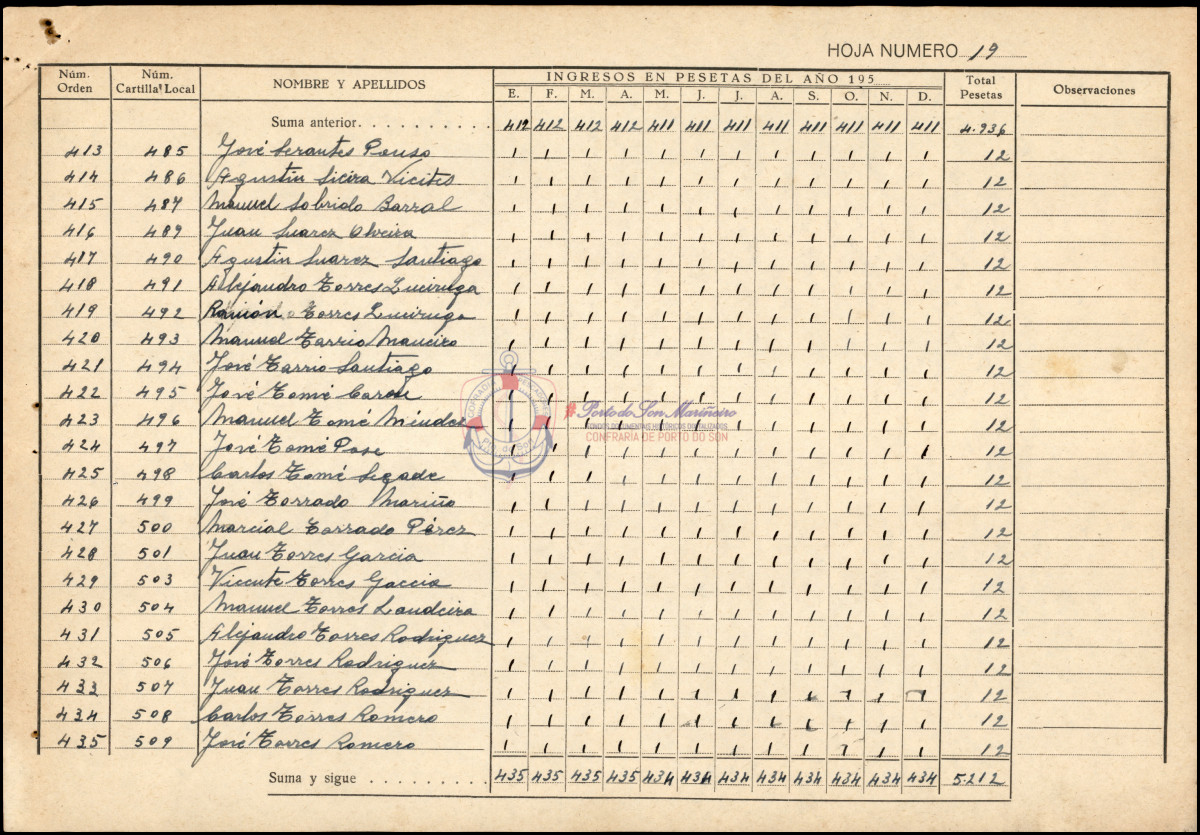 HOJA NUMERO 19
Núm. Orden Núm. Cartilla Local NOMBRE Y APELLIDOS INGRESOS EN PESETAS DEL AÑO 195 Total Pesetas Observaciones
E. F. M. A. M. J. J. A. S. O. N. D.
Suma anterior 412 412 412 412 411 411 411 411 411 411 411 411 4.936
413 485 José Serantes Pouso 1 1 1 1 1 1 1 1 1 1 1 1 12
414 486 Agustin Sieira Vicites 1 1 1 1 1 1 1 1 1 1 1 1 12
415 487 Manuel Sobrido Barral 1 1 1 1 1 1 1 1 1 1 1 1 12
416 489 Juan Suarez Olveira 1 1 1 1 1 1 1 1 1 1 1 1 12
417 490 Agustin Suarez Santiago 1 1 1 1 1 1 1 1 1 1 1 1 12
418 491 Alejandro Torres Queiruga 1 1 1 1 1 1 1 1 1 1 1 1 12
419 492 Ramón Torres Queiruga 1 1 1 1 1 1 1 1 1 1 1 1 12
420 493 Manuel Tarrio Maneiro 1 1 1 1 1 1 1 1 1 1 1 1 12
421 494 José Tarrio Santiago 1 1 1 1 1 1 1 1 1 1 1 1 12
422 495 José Tomé 1 1 1 1 1 1 1 1 1 1 1 1 12
423 496 Manuel Tomé 1 1 1 1 1 1 1 1 1 1 1 1 12
424 497 José Tomé Pose 1 1 1 1 1 1 1 1 1 1 1 1 12
425 498 Carlos Tomé Segade 1 1 1 1 1 1 1 1 1 1 1 1 12
426 499 José Torrado Mariño 1 1 1 1 1 1 1 1 1 1 1 1 12
427 500 Marcial Torrado Pérez 1 1 1 1 1 1 1 1 1 1 1 1 12
428 501 Juan Torres Garcia 1 1 1 1 1 1 1 1 1 1 1 1 12
429 503 Vicente Torres Garcia 1 1 1 1 1 1 1 1 1 1 1 1 12
430 504 Manuel Torres Landeira 1 1 1 1 1 1 1 1 1 1 1 1 12
431 505 Alejandro Torres Rodriguez 1 1 1 1 1 1 1 1 1 1 1 1 12
432 506 José Torres Rodriguez 1 1 1 1 1 1 1 1 1 1 1 1 12
433 507 Juan Torres Rodriguez 1 1 1 1 1 1 1 1 1 1 1 1 12
434 508 Carlos Torres Romero 1 1 1 1 1 1 1 1 1 1 1 1 12
435 509 José Torres Romero 1 1 1 1 1 1 1 1 1 1 1 1 12
Suma y sigue 435 435 435 435 434 434 434 434 434 434 434 434 5.212
#Porto do Son Mariñeiro
FONDOS DOCUMENTAIS HISTÓRICOS DIGITALIZADOS
CONFRARIA DE PORTO DO SON